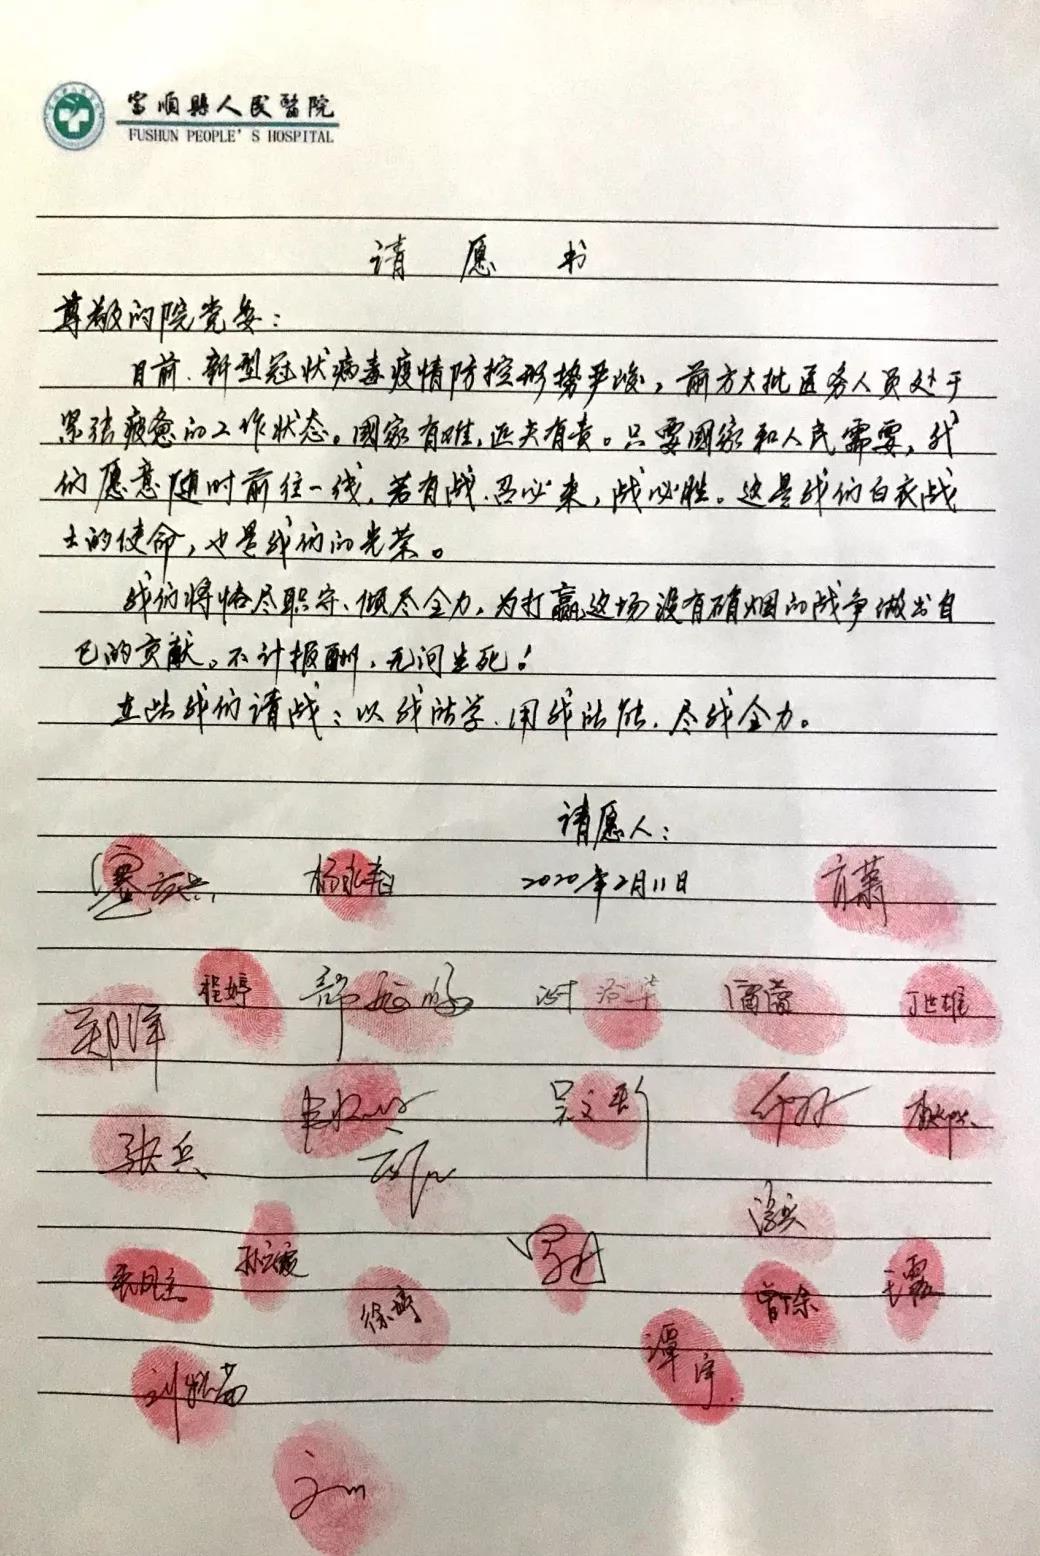 富顺縣人民醫院
FUSHUN PEOPLE'S HOSPITAL
请愿书
尊敬的院党委：
目前、新型冠状病毒疫情防控形势严峻，前方大批医务人员处于
紧张疲惫的工作状态。國家有难，匹夫有责。只要國家和人民需要，我
们愿意随时前往一线，若有战、召必来，战必胜。这是我们白衣战
士的使命，也是我们的光荣。
我们将恪尽职守、倾尽全力，为打赢这场没有硝烟的战争做出自
己的贡献。不计报酬，无问生死！
在此我们请战：以我所学、用我所能、尽我全力。
请愿人：
2020年2月11日
程婷
丁世雄
郑洋
张兵
孙云霞
徐婷
曾余
潭宇